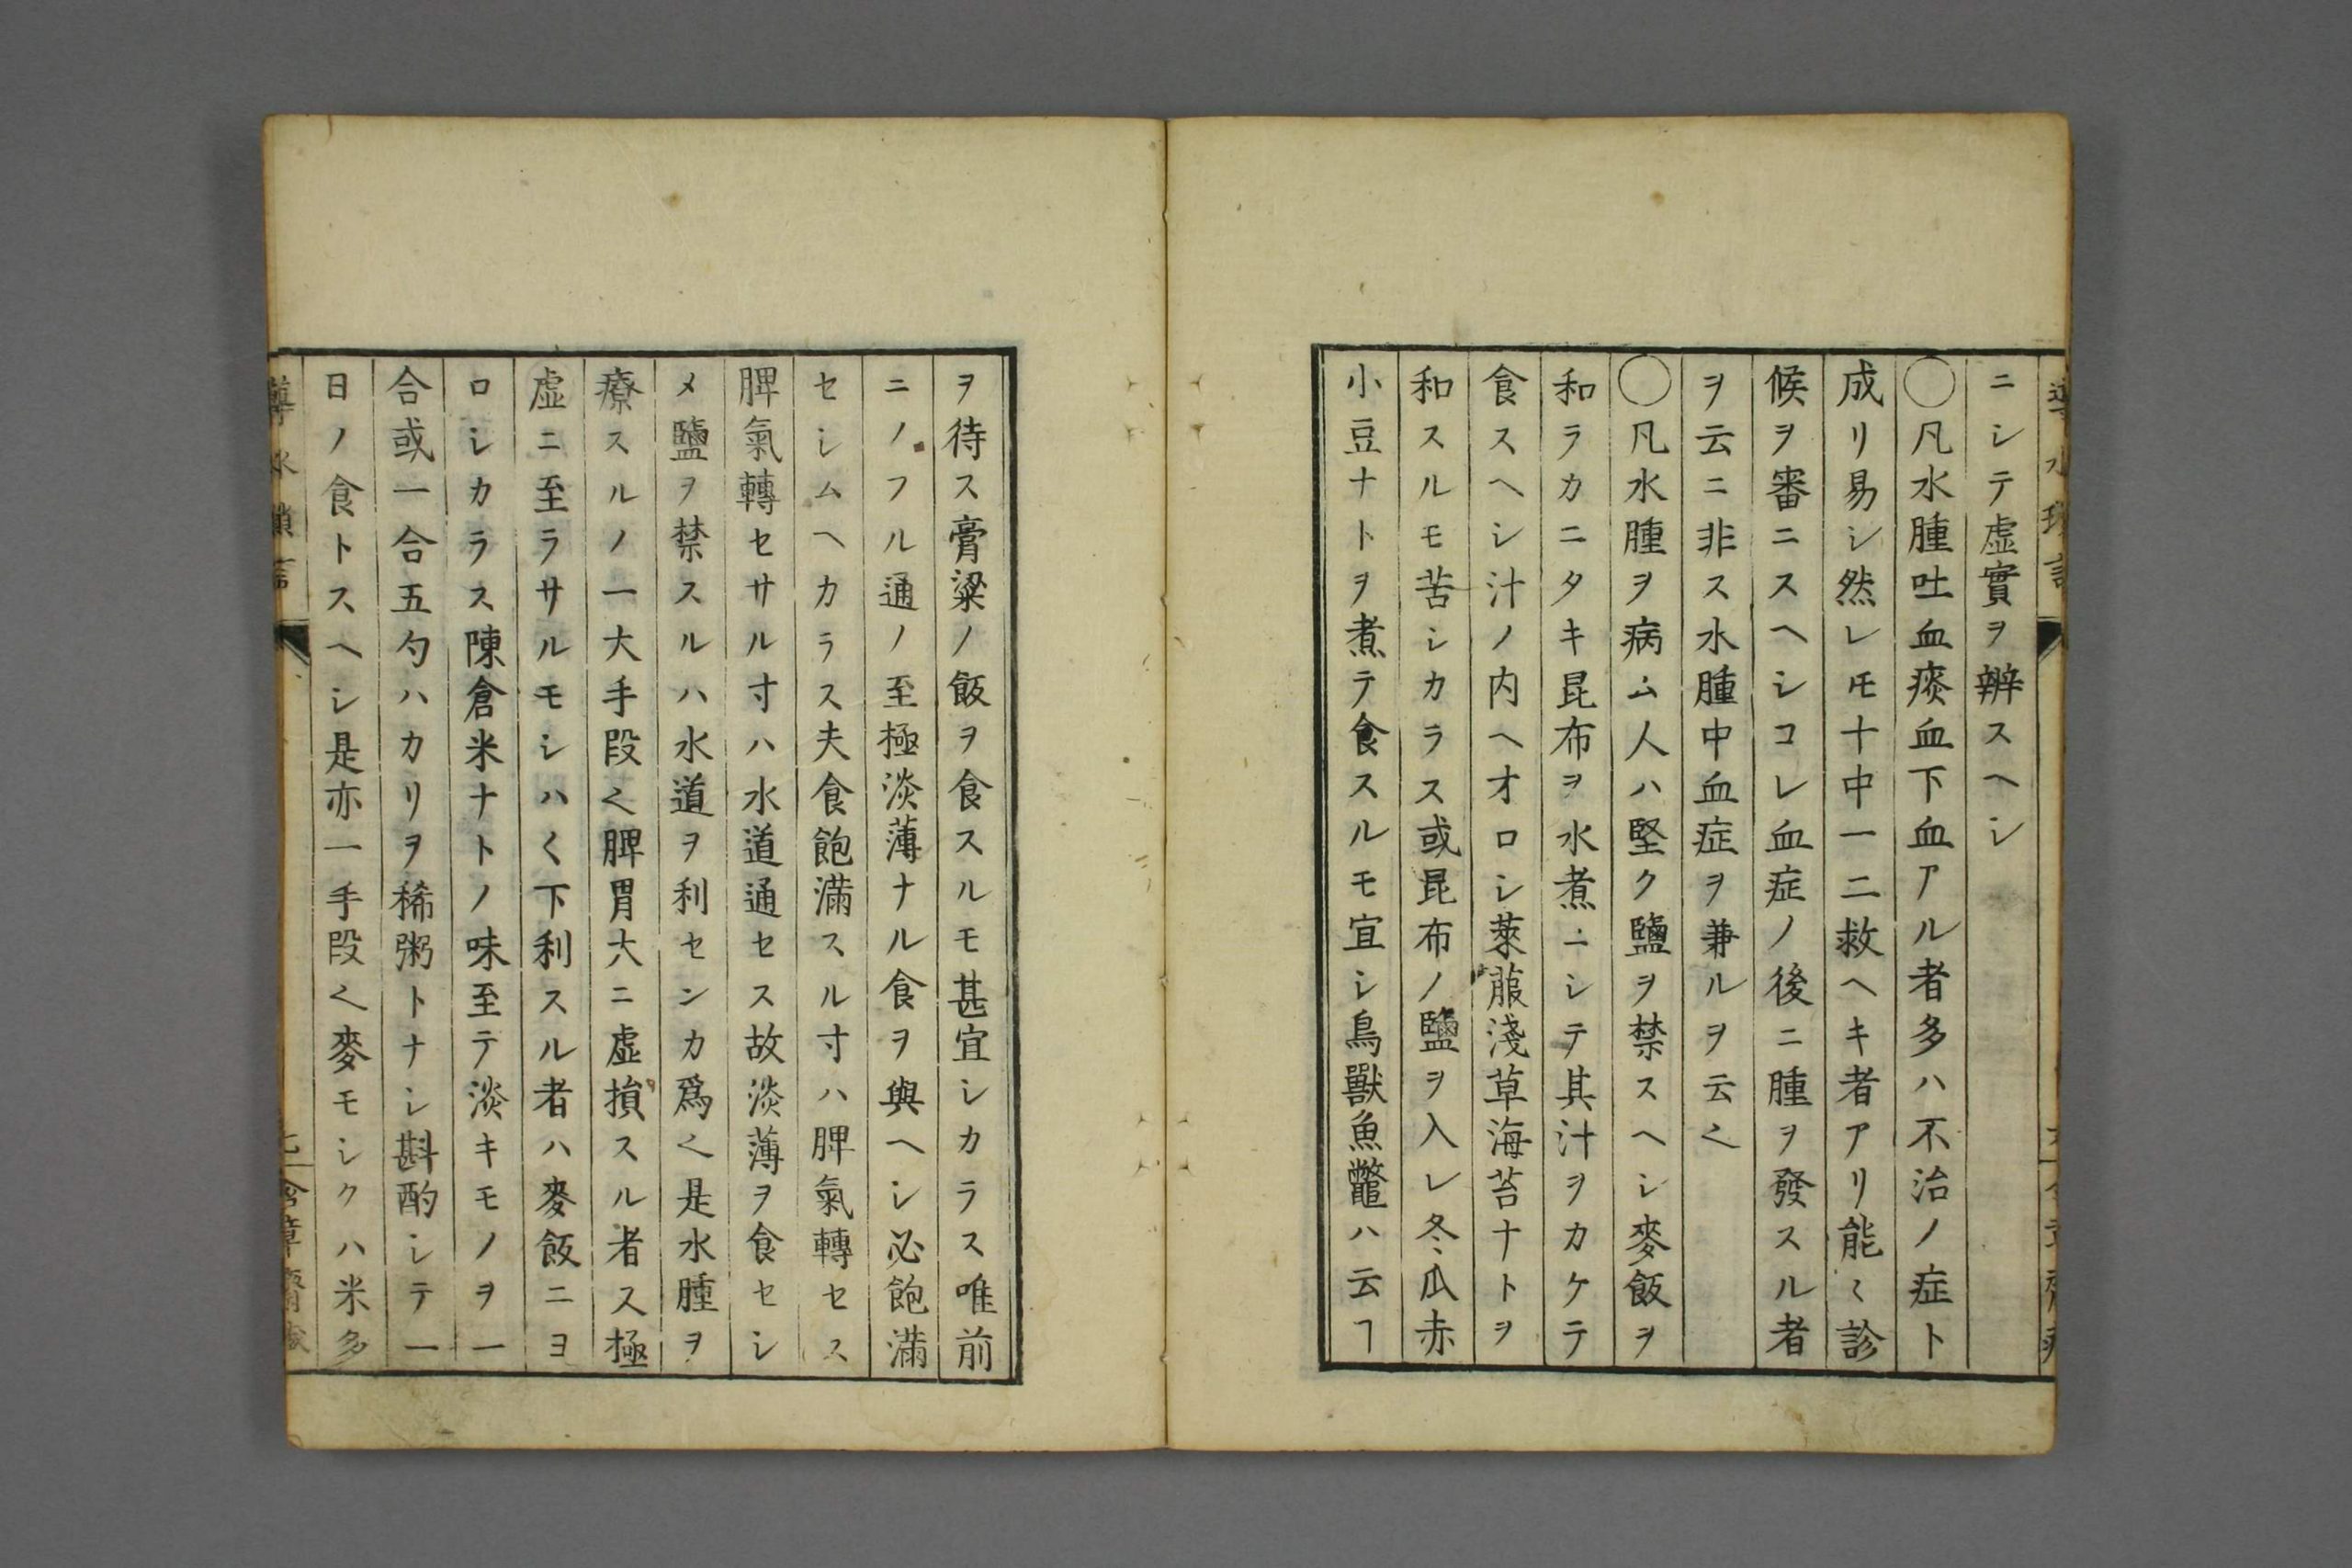 ニシテ虚實ヲ辨スヘシ
○凡水腫吐血痰血下血アル者多ハ不治ノ症ト
成リ易シ然レ𪜈十中一二救ヘキ者アリ能〻診
候ヲ審ニスヘシコレ血症ノ後ニ腫ヲ發スル者
ヲ云ニ非ス水腫中血症ヲ兼ルヲ云く
○凡水腫ヲ病ム人ハ堅ク鹽ヲ禁スヘシ麥飯ヲ
和ラカニタキ昆布ヲ水煮ニシテ其汁ヲカケテ
食スヘシ汁ノ内ヘオロシ萊菔淺草海苔ナトヲ
和スルモ苦シカラス或昆布ノ鹽ヲ入レ冬瓜赤
小豆ナトヲ煮テ食スルモ宜シ鳥獸魚鼈ハ云ヿ
ヲ待ス膏粱ノ飯ヲ食スルモ甚宜シカラス唯前
ニノフル通ノ至極淡薄ナル食ヲ與ヘシ必飽滿
セシムヘカラス夫食飽滿スル寸ハ脾氣轉セス
脾氣轉セサル寸ハ水道通セス故淡薄ヲ食セシ
メ鹽ヲ禁スルハ水道ヲ利センカ爲く是水腫ヲ
療スルノ一大手段く脾胃大ニ虚損スル者又極
虚ニ至ラサルモシハく下利スル者ハ麥飯ニヨ
ロシカラス陳倉米ナトノ味至テ淡キモノヲ一
合或一合五勺ハカリヲ稀粥トナシ斟酌シテ一
日ノ食トスヘシ是亦一手段く麥モシクハ米多